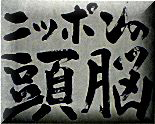 ニッポンの
頭脳